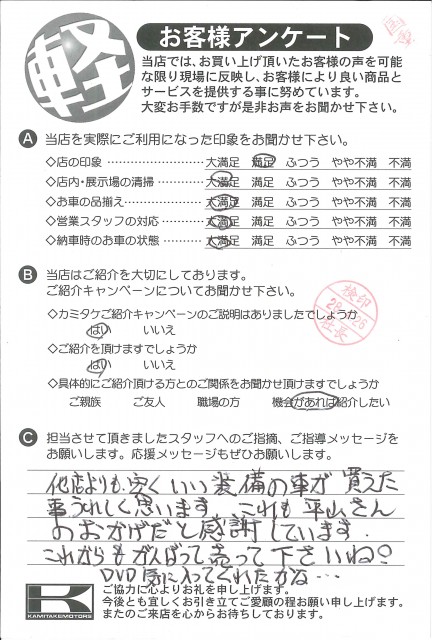 軽
お客様アンケート
当店では、お買い上げ頂いたお客様の声を可能
な限り現場に反映し、お客様により良い商品と
サービスを提供する事に努めています。
大変お手数ですが是非お声をお聞かせ下さい。
A 当店を実際にご利用になった印象をお聞かせ下さい。
◇店の印象 ………………… 大満足 満足 ふつう やや不満 不満
◇店内・展示場の清掃……… 大満足 満足 ふつう やや不満 不満
◇お車の品揃え……………… 大満足 満足 ふつう やや不満 不満
◇営業スタッフの対応……… 大満足 満足 ふつう やや不満 不満
◇納車時のお車の状態……… 大満足 満足 ふつう やや不満 不満
B 当店はご紹介を大切にしております。
ご紹介キャンペーンについてお聞かせ下さい。
◇カミタケご紹介キャンペーンのご説明はありましたでしょうか
はい いいえ
◇ご紹介を頂けますでしょうか
はい いいえ
◇具体的にご紹介頂ける方とのご関係をお聞かせ頂けますでしょうか
ご親族 ご友人 職場の方 機会があれば紹介したい
検印
社長
C 担当させて頂きましたスタッフへのご指摘、ご指導メッセージを
お願いします。応援メッセージもぜひお願いします。
他店よりも、安くいい装備の車が買えた
事うれしく思います。これも平山さん
のおかげだと感謝しています。
これからもがんばって売って下さいね?
DVD気に入ってくれたかな…
KAMITAKEMOTORS
ご協力に心よりお礼を申し上げます。
今後とも宜しくお引き立てご愛顧の程お願い申し上げます。
またのご来店を心からお待ちしております。